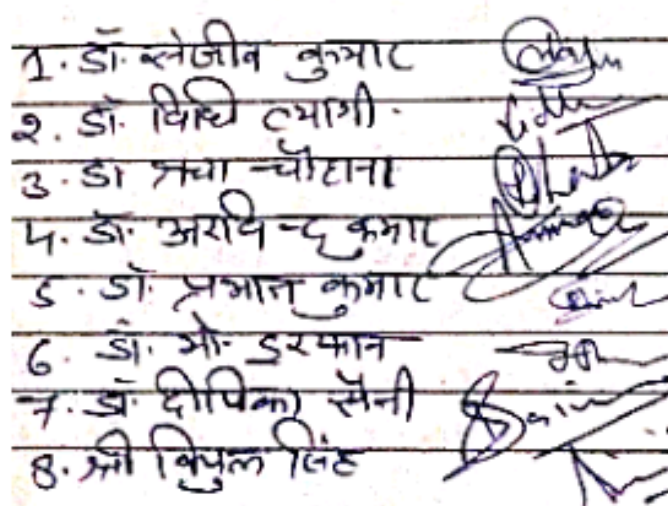 1. डॉ. संजीव कुमार
2. डॉ. विधि त्यागी.
3. डा चौहान
4. डॉ. अरविन्द कुमार
5. डॉ. प्रभात कुमार
6. डॉ. मो. इरफान
7. डॉ दीपिका सैनी
8. श्री विपुल सिंह